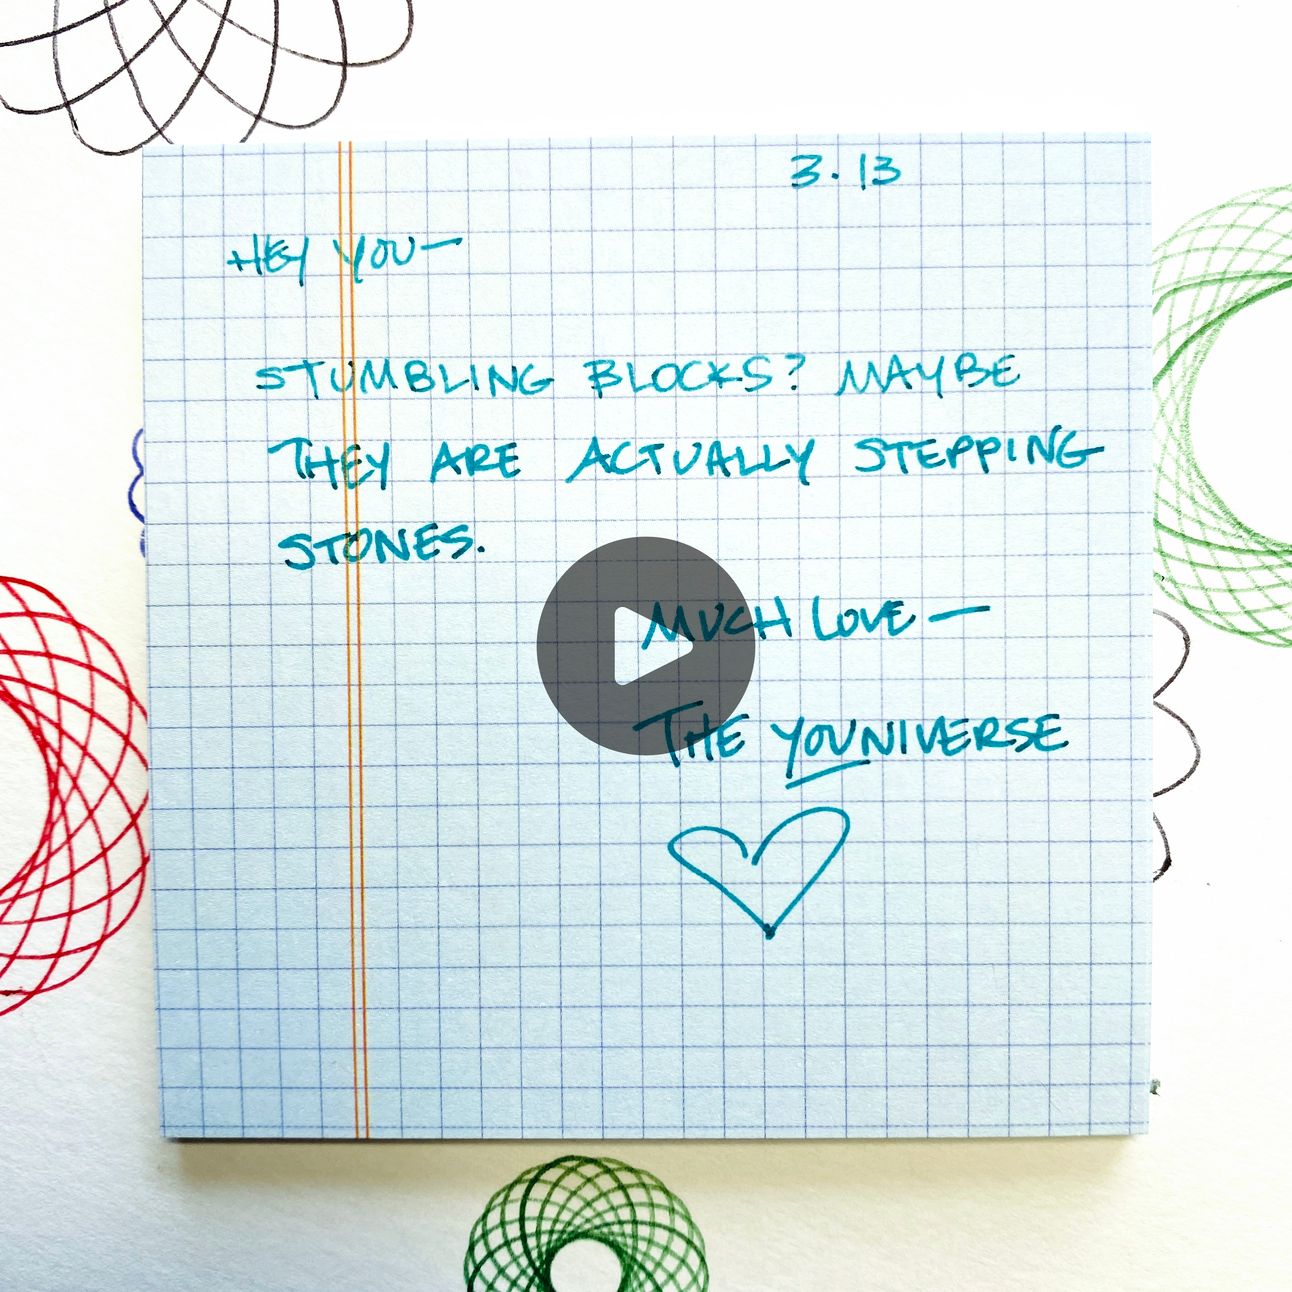 3.13
HEY YOU—
STUMBLING BLOCKS? MAYBE
THEY ARE ACTUALLY STEPPING
STONES.
MUCH LOVE—
THE YOUNIVERSE